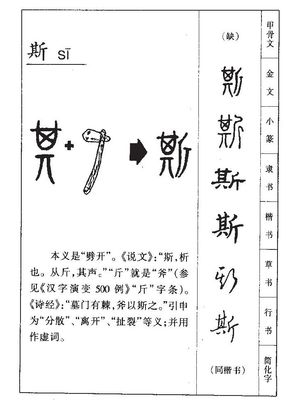 斯 sī
其 + ➡ 斯
本义是“劈开”。《说文》:“斯,析
也。从斤,其声。”“斤”就是“斧”(参
见《汉字演变 500 例》“斤”字条)。
《诗经》:“墓门有棘,斧以斯之。”引申
为“分散”、“离开”、“扯裂”等义;并用
作虚词。
(缺) 甲骨文
斯 金文
斯 小篆
斯 隶书
斯 楷书
斯 草书
斯 行书
(同楷书) 简化字